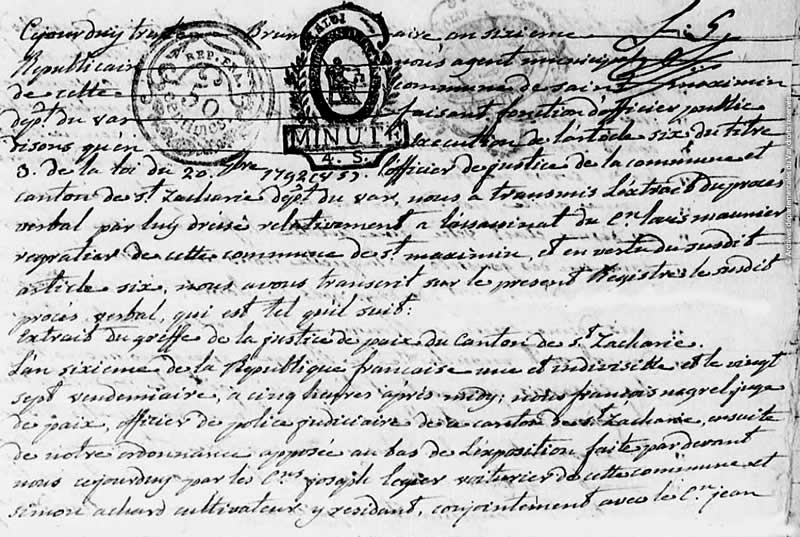 Cejourduy trente Brumaire an sixieme
Republicaine nous agent municipal
de cette commune de saint maximin
dep.t du var faisant fonction d'officier public
disons qu'en execution de l'article six du titre
3. de la loi du 20. 7bre 1792 (v.s.) l'officier de justice de la commune et
canton de s.t Zacharie dep.t du var, nous a transmis l'extrait du procés
verbal par luy dréssé relativement a l'assassinat du C.en louis maunier
de cette commune de s.t maximin, et en vertu du susdit
article six, nous avons transcrit sur le present Registre le susdit
procés verbal, qui est tel qu'il suit:
Extrait du greffe de la justice de paix du Canton de s.t Zacharie.
L'an sixieme de la Republique francaise une et indivisible et le vingt
sept vendemiaire, a cinq heures aprés midy; nous francois negrel juge
de paix, officier de police judiciaire de ce canton de s.t Zacharie, ensuite
de notre ordonnance apposée au bas de l'exposition faite pardevant
nous cejourduy par les C.ens joseph voiturier de cette commune et
simon achard cultivateur y residant, conjointement avec le C.en jean
REP. FRA.
50
CENTIMES
LA LOI
MINUTE
4. S.